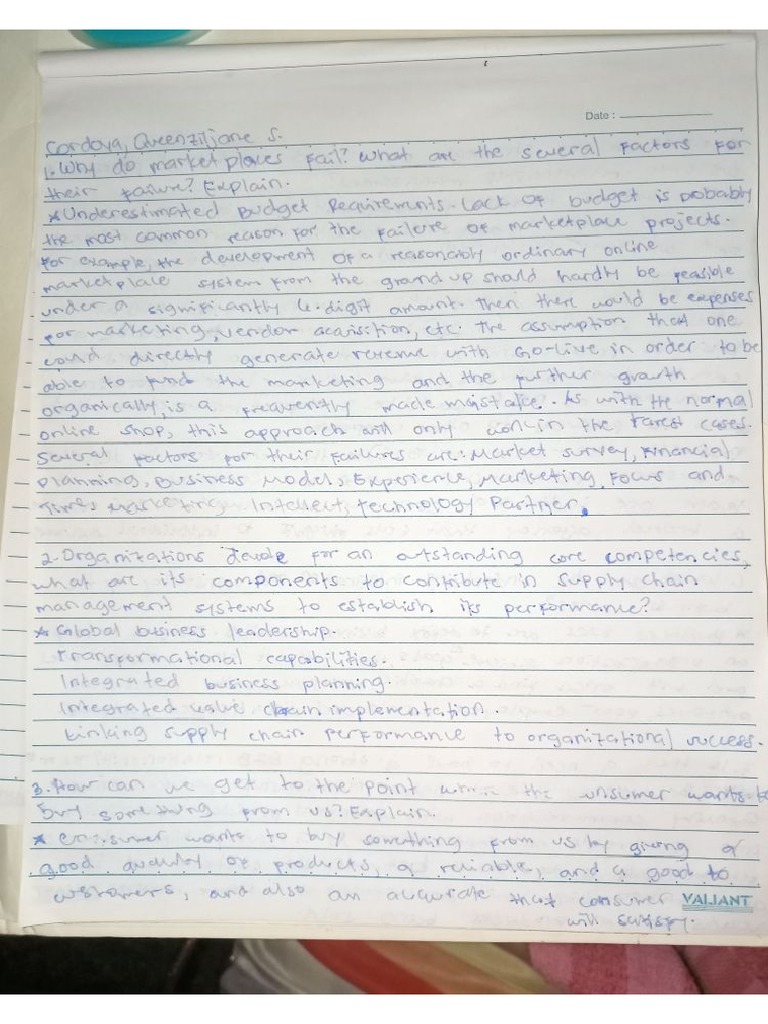 Date :
Cordova, Queenziljane S.
1. Why do marketplaces fail? What are the several factors for
their failure? Explain.
* Underestimated Budget Requirements - Lack of budget is probably
the most common reason for the failure of marketplace projects.
For example, the development of a reasonably ordinary online
marketplace system from the ground up should hardly be feasible
under a significantly 6-digit amount. Then there would be expenses
for marketing, vendor acquisition, etc. The assumption that one
could directly generate revenue with Go-Live in order to be
able to fund the marketing and the further growth
organically, is a frequently made mistake. As with the normal
online shop, this approach will only work in the rarest cases.
Several factors for their failures are: Market survey, Financial
planning, Business Model, Experience, Marketing Focus and
Times Marketing Intellect, Technology Partner.
2. Organizations devote for an outstanding core competencies,
what are its components to contribute in supply chain
management systems to establish its performance?
* Global business leadership.
Transformational capabilities.
Integrated business planning.
Integrated value chain implementation.
Linking supply chain performance to organizational success.
3. How can we get to the point where the consumer wants to
buy something from us? Explain.
* Consumer wants to buy something from us by giving a
good quality of products, a reliable, and a good to
customers, and also an accurate that consumer
VALIANT
will satisfy.